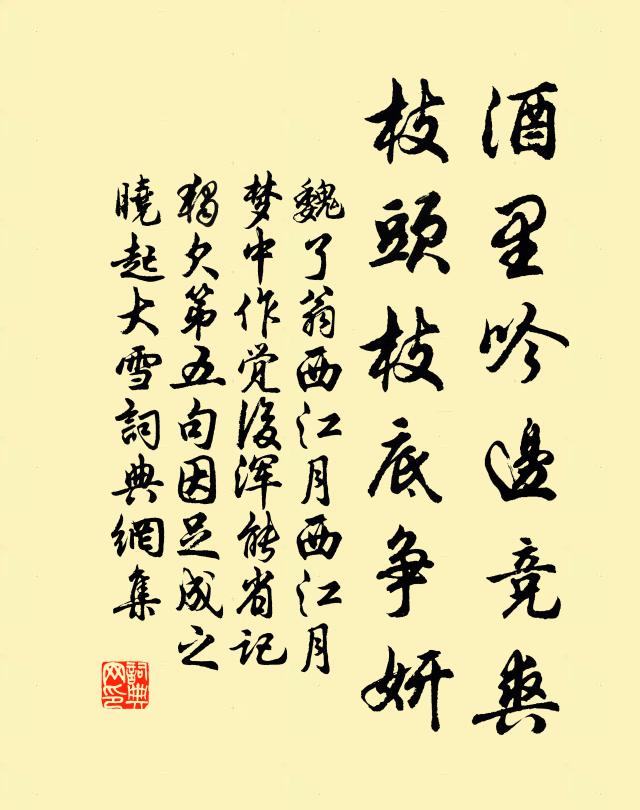 酒里吟邊竞爽
枝頭枝底争妍
魏了翁西江月西江月
梦中作觉後浑能省记
独欠第五句因足成之
曉起大雪詞典網集
詞典网印